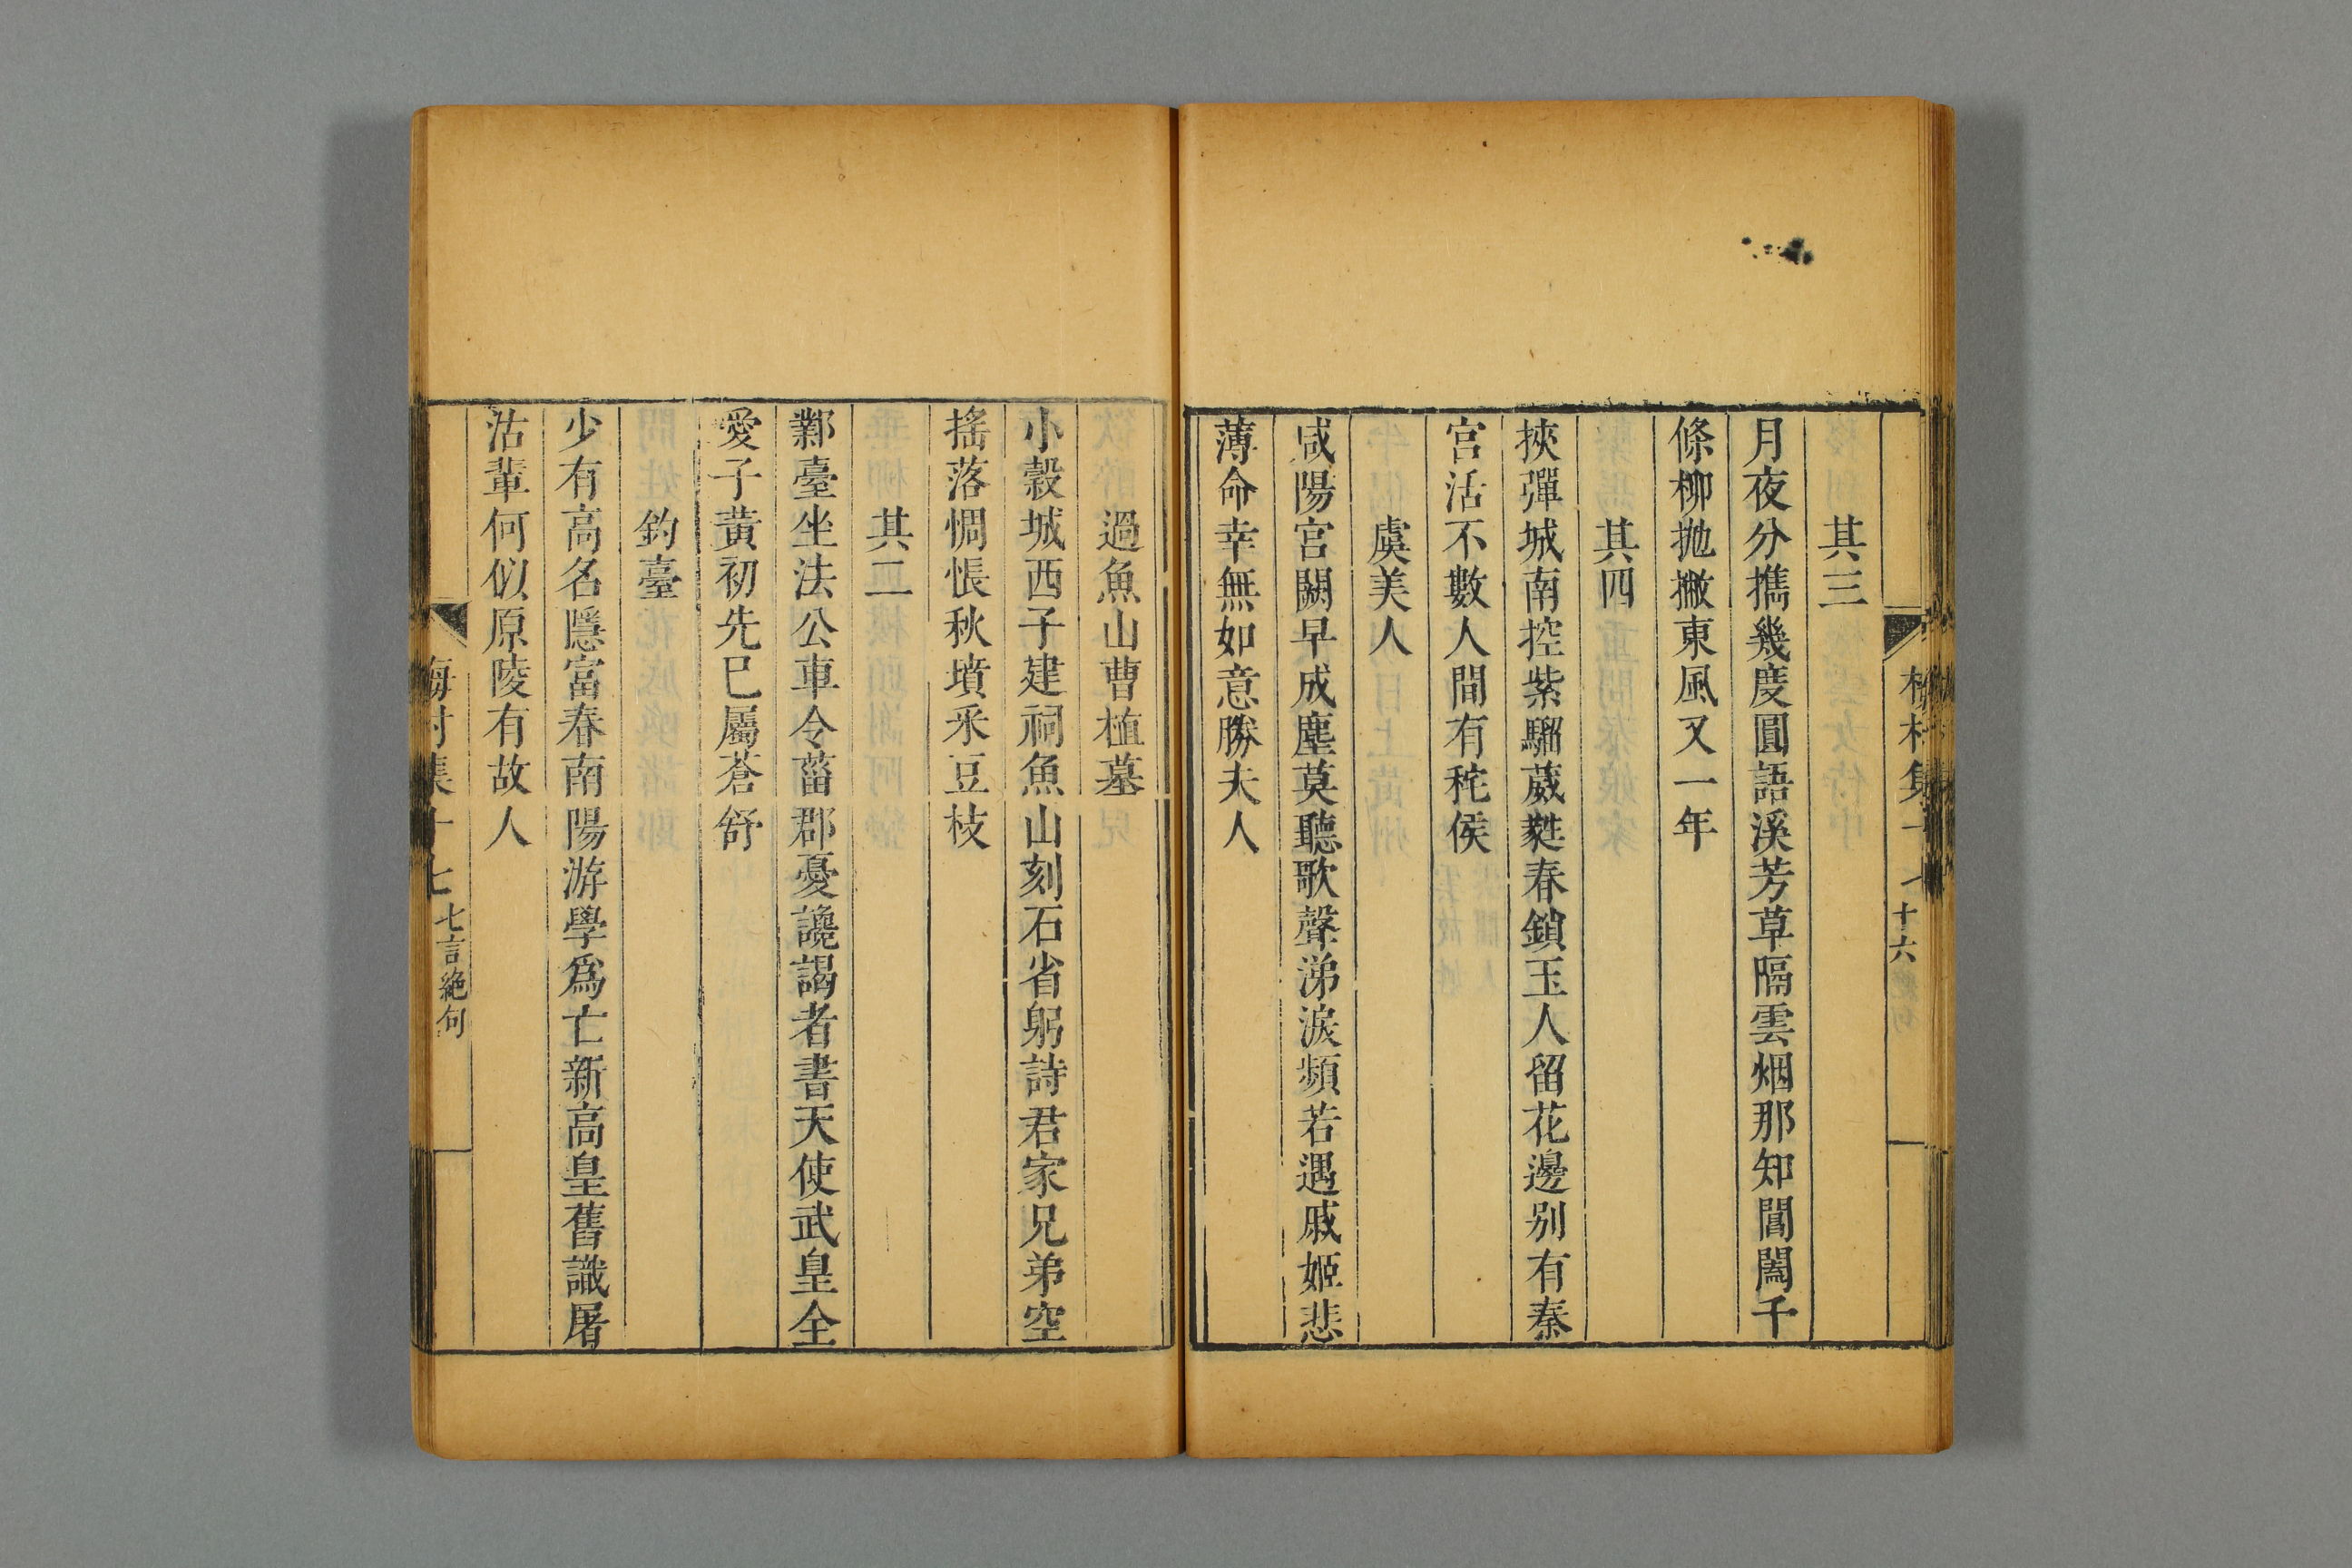 其三
月夜分攜幾度圓語溪芳草隔雲烟那知閶闔千
條柳拋撇東風又一年
其四
挾彈城南控紫騮葳蕤春鎖玉人留花邊別有秦
宮活不數人間有秺侯
虞美人
咸陽宮闕早成塵莫聽歌聲涕淚頻若遇戚姬悲
薄命幸無如意勝夫人
十六
過魚山曹植墓
小穀城西子建祠魚山刻石省躬詩君家兄弟空
搖落惆悵秋墳采豆枝
其二
鄴臺坐法公車令菑郡憂讒謁者書天使武皇全
愛子黃初先巳屬蒼舒
釣臺
少有高名隱富春南陽游學爲亡新高皇舊識屠
沽輩何似原陵有故人
梅村集十七 七言絕句